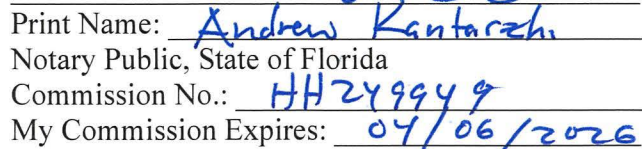 Print Name: Andrew Kantarzhi
Notary Public, State of Florida
Commission No.: HH249949
My Commission Expires: 04/06/2026